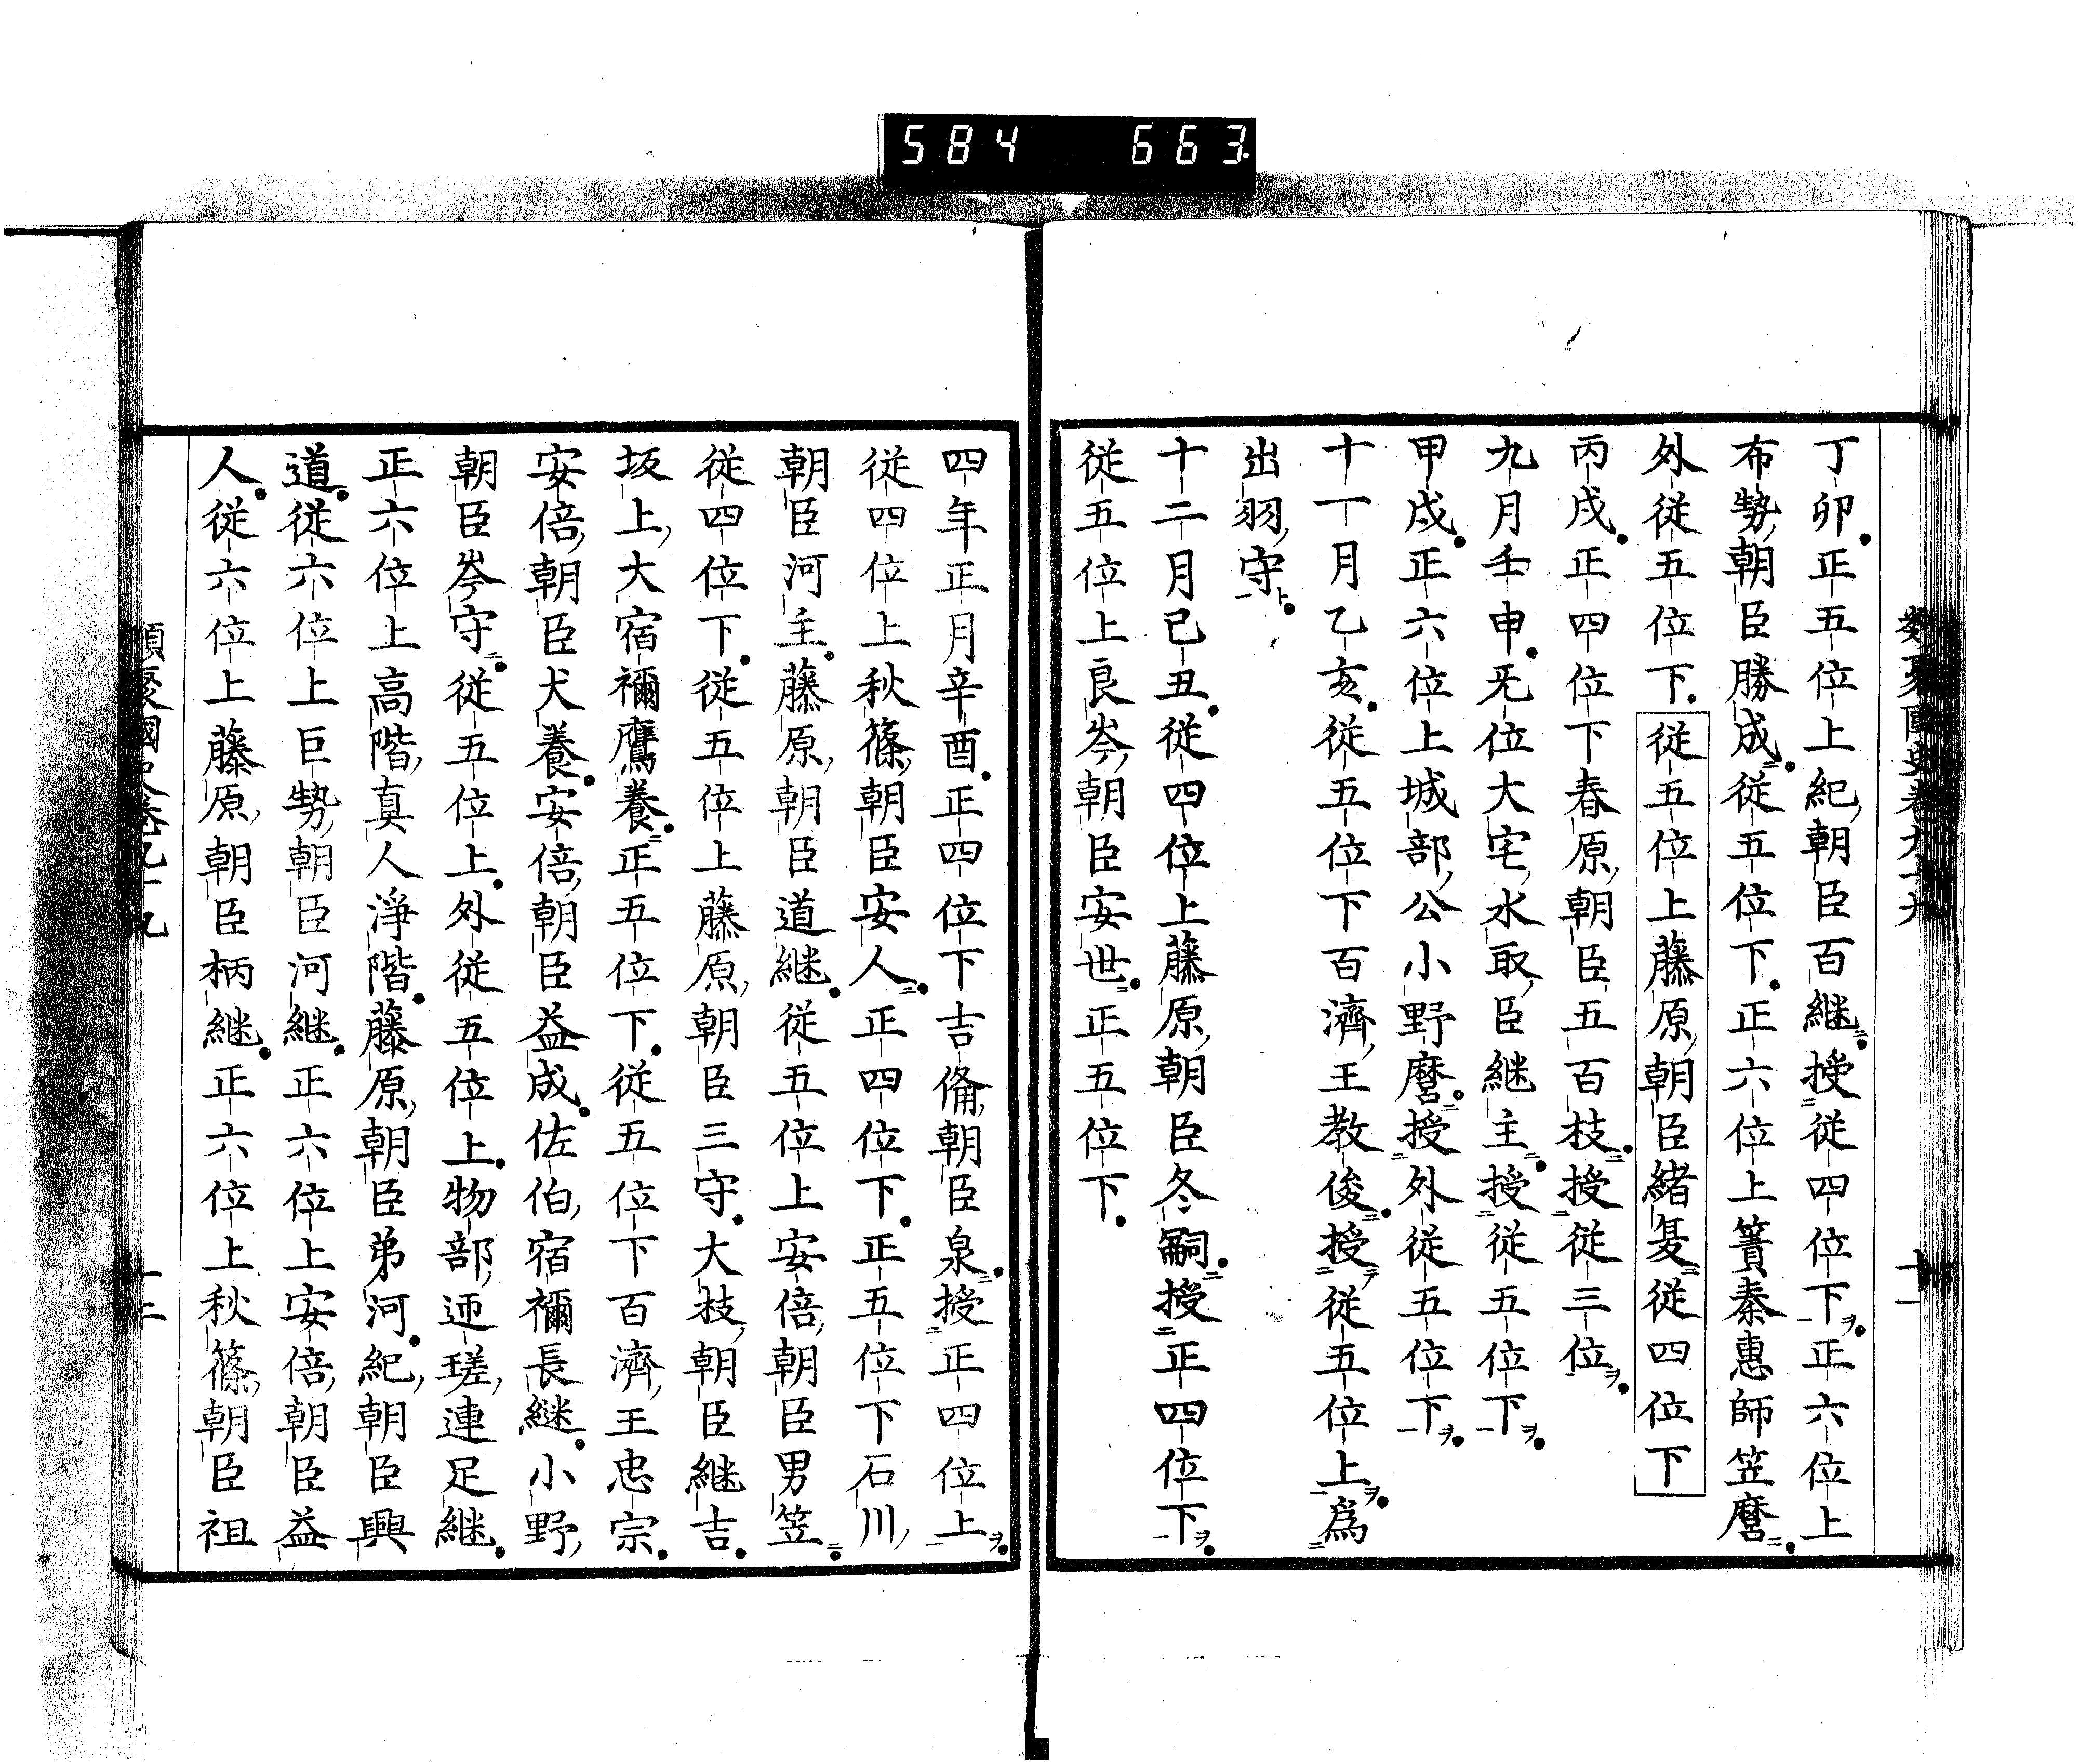 584 663
類聚國史卷九十九 十一
丁卯正五位上紀朝臣百継授従四位下正六位上
布勢朝臣勝成従五位下正六位上簀秦惠師笠麿
外従五位下従五位上藤原朝臣緒夏従四位下
丙戌正四位下春原朝臣五百枝授従三位
九月壬申无位大宅水取臣継主授従五位下
甲戌正六位上城部公小野麿授外従五位下
十一月乙亥従五位下百濟王教俊授従五位上為
出羽守
十二月己丑従四位上藤原朝臣冬嗣授正四位下
従五位上良岑朝臣安世正五位下
四年正月辛酉正四位下吉備朝臣泉授正四位上
従四位上秋篠朝臣安人正四位下正五位下石川
朝臣河主藤原朝臣道継従五位上安倍朝臣男笠
従四位下従五位上藤原朝臣三守大枝朝臣継吉
坂上大宿禰鷹養正五位下従五位下百濟王忠宗
安倍朝臣犬養安倍朝臣益成佐伯宿禰長継小野
朝臣岑守従五位上外従五位上物部迊瑳連足継
正六位上高階真人淨階藤原朝臣弟河紀朝臣興
道従六位上巨勢朝臣河継正六位上安倍朝臣益
人従六位上藤原朝臣柄継正六位上秋篠朝臣祖
類聚國史卷九十九 十二